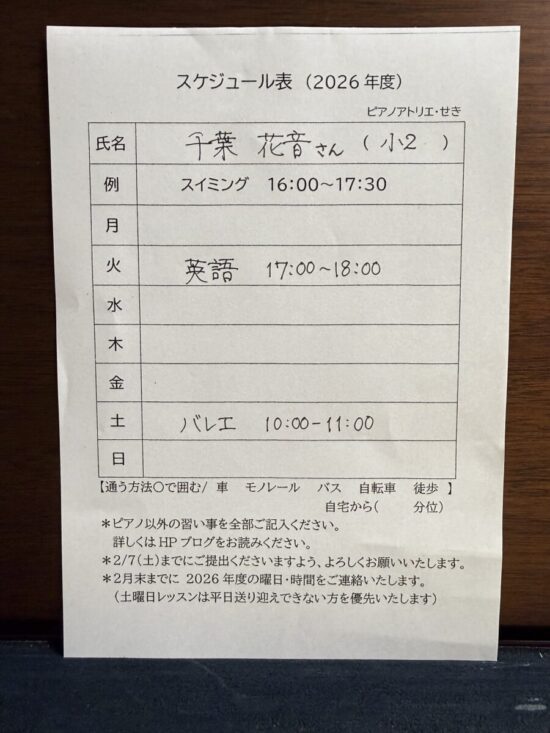 スケジュール表 （2026年度）
ピアノアトリエ・せき
氏名 千葉 花音さん （ 小2 ）
例 スイミング 16:00～17:30
月
火 英語 17:00～18:00
水
木
金
土 バレエ 10:00-11:00
日
【通う方法○で囲む/ 車 モノレール バス 自転車 徒歩 】
自宅から( 分位)
＊ピアノ以外の習い事を全部ご記入ください。
詳しくはHPブログをお読みください。
＊2/7(土)までにご提出くださいますよう、よろしくお願いいたします。
＊2月末までに 2026年度の曜日・時間をご連絡いたします。
（土曜日レッスンは平日送り迎えできない方を優先いたします）